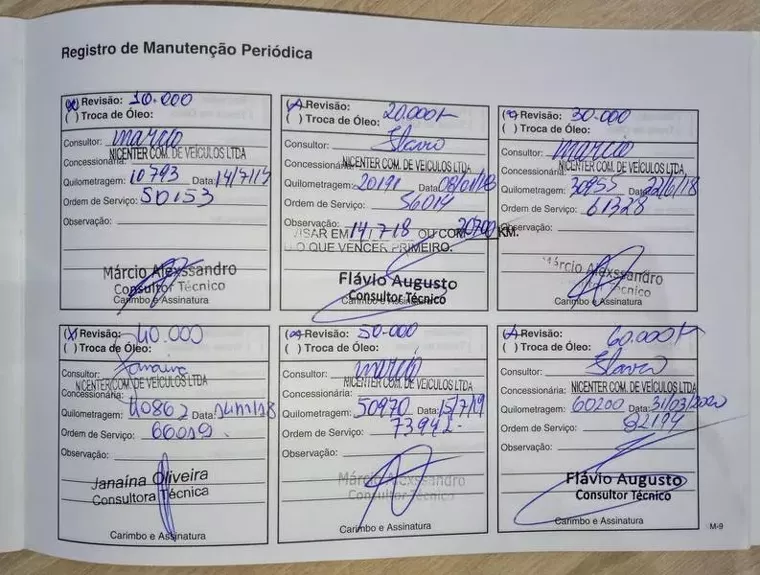 Registro de Manutenção Periódica
(X) Revisão: 10.000
( ) Troca de Óleo:
Consultor: Marcio
NICENTER COM. DE VEÍCULOS LTDA
Concessionária:
Quilometragem: 10793 Data: 14/7/17
Ordem de Serviço: 50153
Observação:
Márcio Alexssandro
Consultor Técnico
Carimbo e Assinatura
(X) Revisão: 20.000K
( ) Troca de Óleo:
Consultor: Flavio
NICENTER COM. DE VEÍCULOS LTDA
Concessionária:
Quilometragem: 20191 Data: 08/01/18
Ordem de Serviço: 56014
Observação:
ISAR EM 14/7/18 OU COM 30700 KM.
O QUE VENCER PRIMEIRO.
Flávio Augusto
Consultor Técnico
Carimbo e Assinatura
(X) Revisão: 30.000
( ) Troca de Óleo:
Consultor: Marcio
NICENTER COM. DE VEÍCULOS LTDA
Concessionária:
Quilometragem: 30955 Data: 22/6/18
Ordem de Serviço: 61328
Observação:
Márcio Alexssandro
Consultor Técnico
Carimbo e Assinatura
(X) Revisão: 40.000
( ) Troca de Óleo:
Consultor: Janaina
NICENTER COM. DE VEÍCULOS LTDA
Concessionária:
Quilometragem: 40862 Data:
Ordem de Serviço: 66019.
Observação:
Janaína Oliveira
Consultora Técnica
Carimbo e Assinatura
(X) Revisão: 50.000
( ) Troca de Óleo:
Consultor: Marcio
NICENTER COM. DE VEÍCULOS LTDA
Concessionária:
Quilometragem: 50970 Data: 15/7/19
Ordem de Serviço: 73942.
Observação:
Márcio Alexssandro
Consultor Técnico
Carimbo e Assinatura
(X) Revisão: 60.000K
( ) Troca de Óleo:
Consultor: Flavio
NICENTER COM. DE VEÍCULOS LTDA
Concessionária:
Quilometragem: 60200 Data: 31/03/2020
Ordem de Serviço: 82194
Observação:
Flávio Augusto
Consultor Técnico
Carimbo e Assinatura
M-9